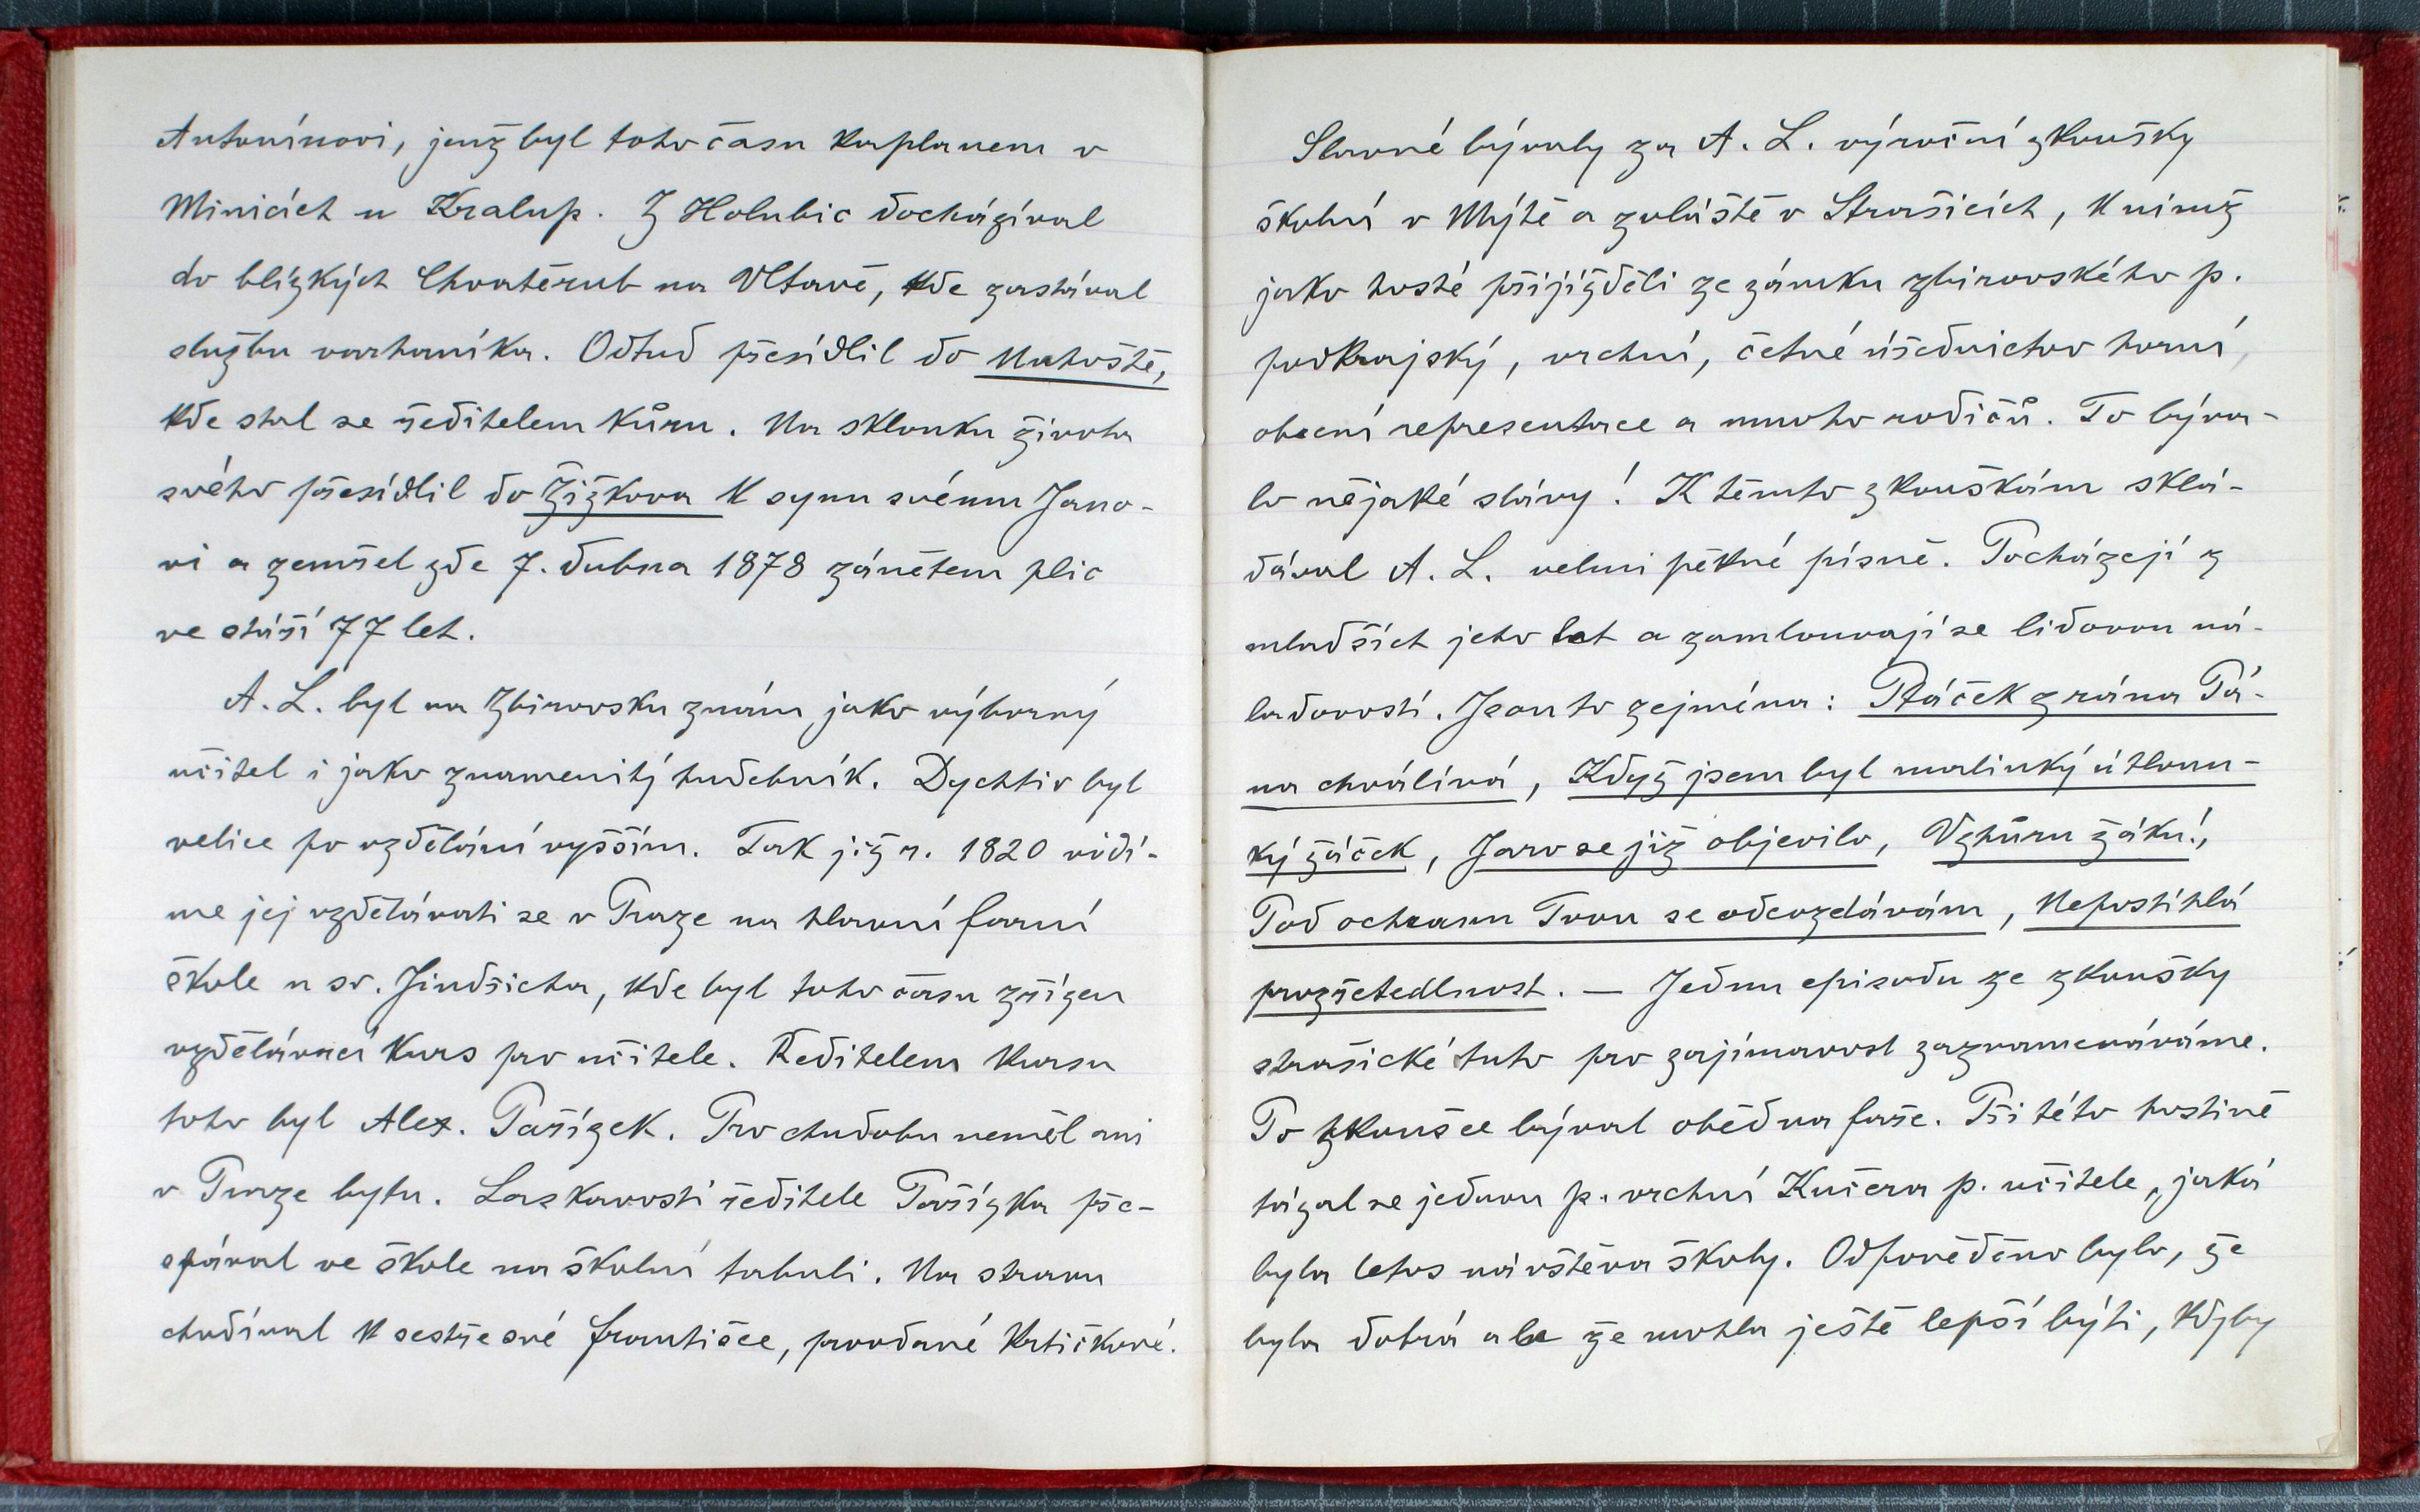 Antonínovi, jenž byl toho času kaplanem v
Minicích u Kralup. Z Holubic docházíval
do blízkých Chvatěrub na Vltavě, kde zastával
službu varhaníka. Odtud přesídlil do Nahoště,
kde stal se ředitelem kůru. Na sklonku života
svého přesídlil do Žižkova k synu svému Jano-
vi a zemřel zde 7. dubna 1878 zánětem plic
ve stáří 77 let.
A. L. byl na Zbirovsku znám jako výborný
učitel i jako znamenitý hudebník. Dychtiv byl
velice po vzdělání vyšším. Tak již r. 1820 vidí-
me jej vzdělávati se v Praze na hlavní farní
škole u sv. Jindřicha, kde byl toho času zřízen
vzdělávací kurs pro učitele. Ředitelem kursu
toho byl Alex. Pařízek. Pro chudobu neměl ani
v Praze bytu. Laskavostí ředitele Pařízka pře-
spával ve škole na školní tabuli. Na stravu
chodíval k sestře své Františce, provdané Krtičkové.
Slavné bývaly za A. L. výroční zkoušky
školní v Mýtě a zvláště v Strašicích, k nimž
jako hosté přijížděli ze zámku zbirovského p.
podkrajský, vrchní, četné úřednictvo horní,
obecní representace a mnoho rodičů. To býva-
lo nějaké slávy! K těmto zkouškám sklá-
dával A. L. velmi pěkné písně. Pocházejí z
mladších jeho let a zamlouvají se lidovou ná-
ladovostí. Jsou to zejména: Ptáček z rána Pá-
na chválívá, Když jsem byl malinký útloun-
ký žáček, Jaro se již objevilo, Vzhůru žáku!,
Pod ochranu Tvou se odevzdávám, Nepostihlá
prozřetedlnost. — Jednu episodu ze zkoušky
strašické tuto pro zajímavost zaznamenáváme.
Po zkoušce býval oběd na faře. Při této hostině
tázal se jednou p. vrchní Kučera p. učitele, jaká
byla letos návštěva školy. Odpověděno bylo, že
byla dobrá ale že mohla ještě lepší býti, kdyby